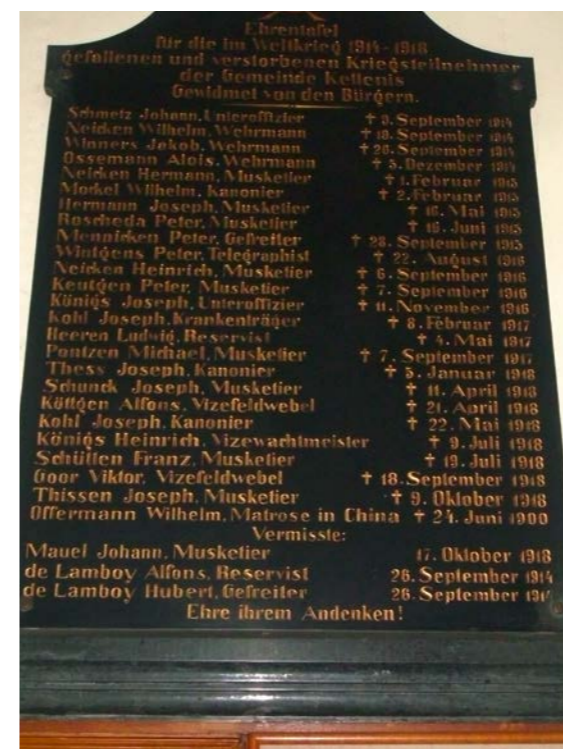 Ehrentafel
für die im Weltkrieg 1914-1918
gefallenen und verstorbenen Kriegsteilnehmer
der Gemeinde Kettenis
Gewidmet von den Bürgern.
Schmetz Johann, Unteroffizier † 9. September 1914
Neicken Wilhelm, Wehrmann † 18. September 1914
Winers Jakob, Wehrmann † 26. September 1914
Ossemann Alois, Wehrmann † 5. Dezember 1914
Neicken Hermann, Musketier † 1. Februar 1915
Morkel Wilhelm, Kanonier † 2. Februar 1915
Hermann Joseph, Musketier † 16. Mai 1915
Roscheda Peter, Musketier † 16. Juni 1915
Mennicken Peter, Gefreiter † 28. September 1915
Wintgens Peter, Telegraphist † 22. August 1916
Neicken Heinrich, Musketier † 6. September 1916
Keutgen Peter, Musketier † 7. September 1916
Königs Joseph, Unteroffizier † 11. November 1916
Kohl Joseph, Krankenträger † 8. Februar 1917
Heeren Ludwig, Reservist † 4. Mai 1917
Pontzen Michael, Musketier † 7. September 1917
Thess Joseph, Kanonier † 5. Januar 1918
Schunck Joseph, Musketier † 11. April 1918
Köttgen Alfons, Vizefeldwebel † 21. April 1918
Kohl Joseph, Kanonier † 22. Mai 1918
Königs Heinrich, Vizewachtmeister † 9. Juli 1918
Schütten Franz, Musketier † 19. Juli 1918
Goor Viktor, Vizefeldwebel † 18. September 1918
Thissen Joseph, Musketier † 9. Oktober 1918
Offermann Wilhelm, Matrose in China † 24. Juni 1900
Vermisste:
Mauel Johann, Musketier 17. Oktober 1918
de Lamboy Alfons, Reservist 26. September 1914
de Lamboy Hubert, Gefreiter 26. September
Ehre ihrem Andenken!